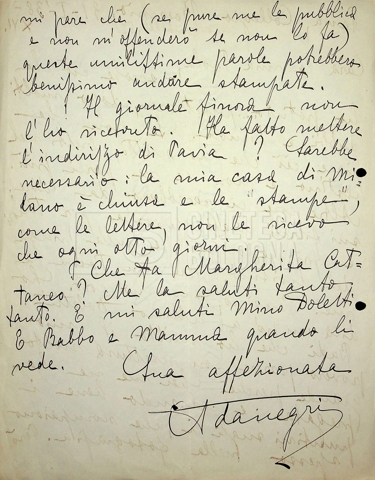 mi pare che (se pure me la pubblica
e non m'offenderò se non lo fa)
queste umilissime parole potrebbero
benissimo andare stampate.
Il giornale finora non
l'ho ricevuto. Ha fatto mettere
l'indirizzo di Pavia? Sarebbe
necessario: la mia casa di Mi-
lano è chiusa e le "stampe",
come le lettere, non le ricevo
che ogni otto giorni.
Che fa Margherita Cat-
taneo? Me la saluti tanto
tanto. E mi saluti Mino Doletti
E Babbo e Mamma quando li
vede. Sua affezionata
Adanegri